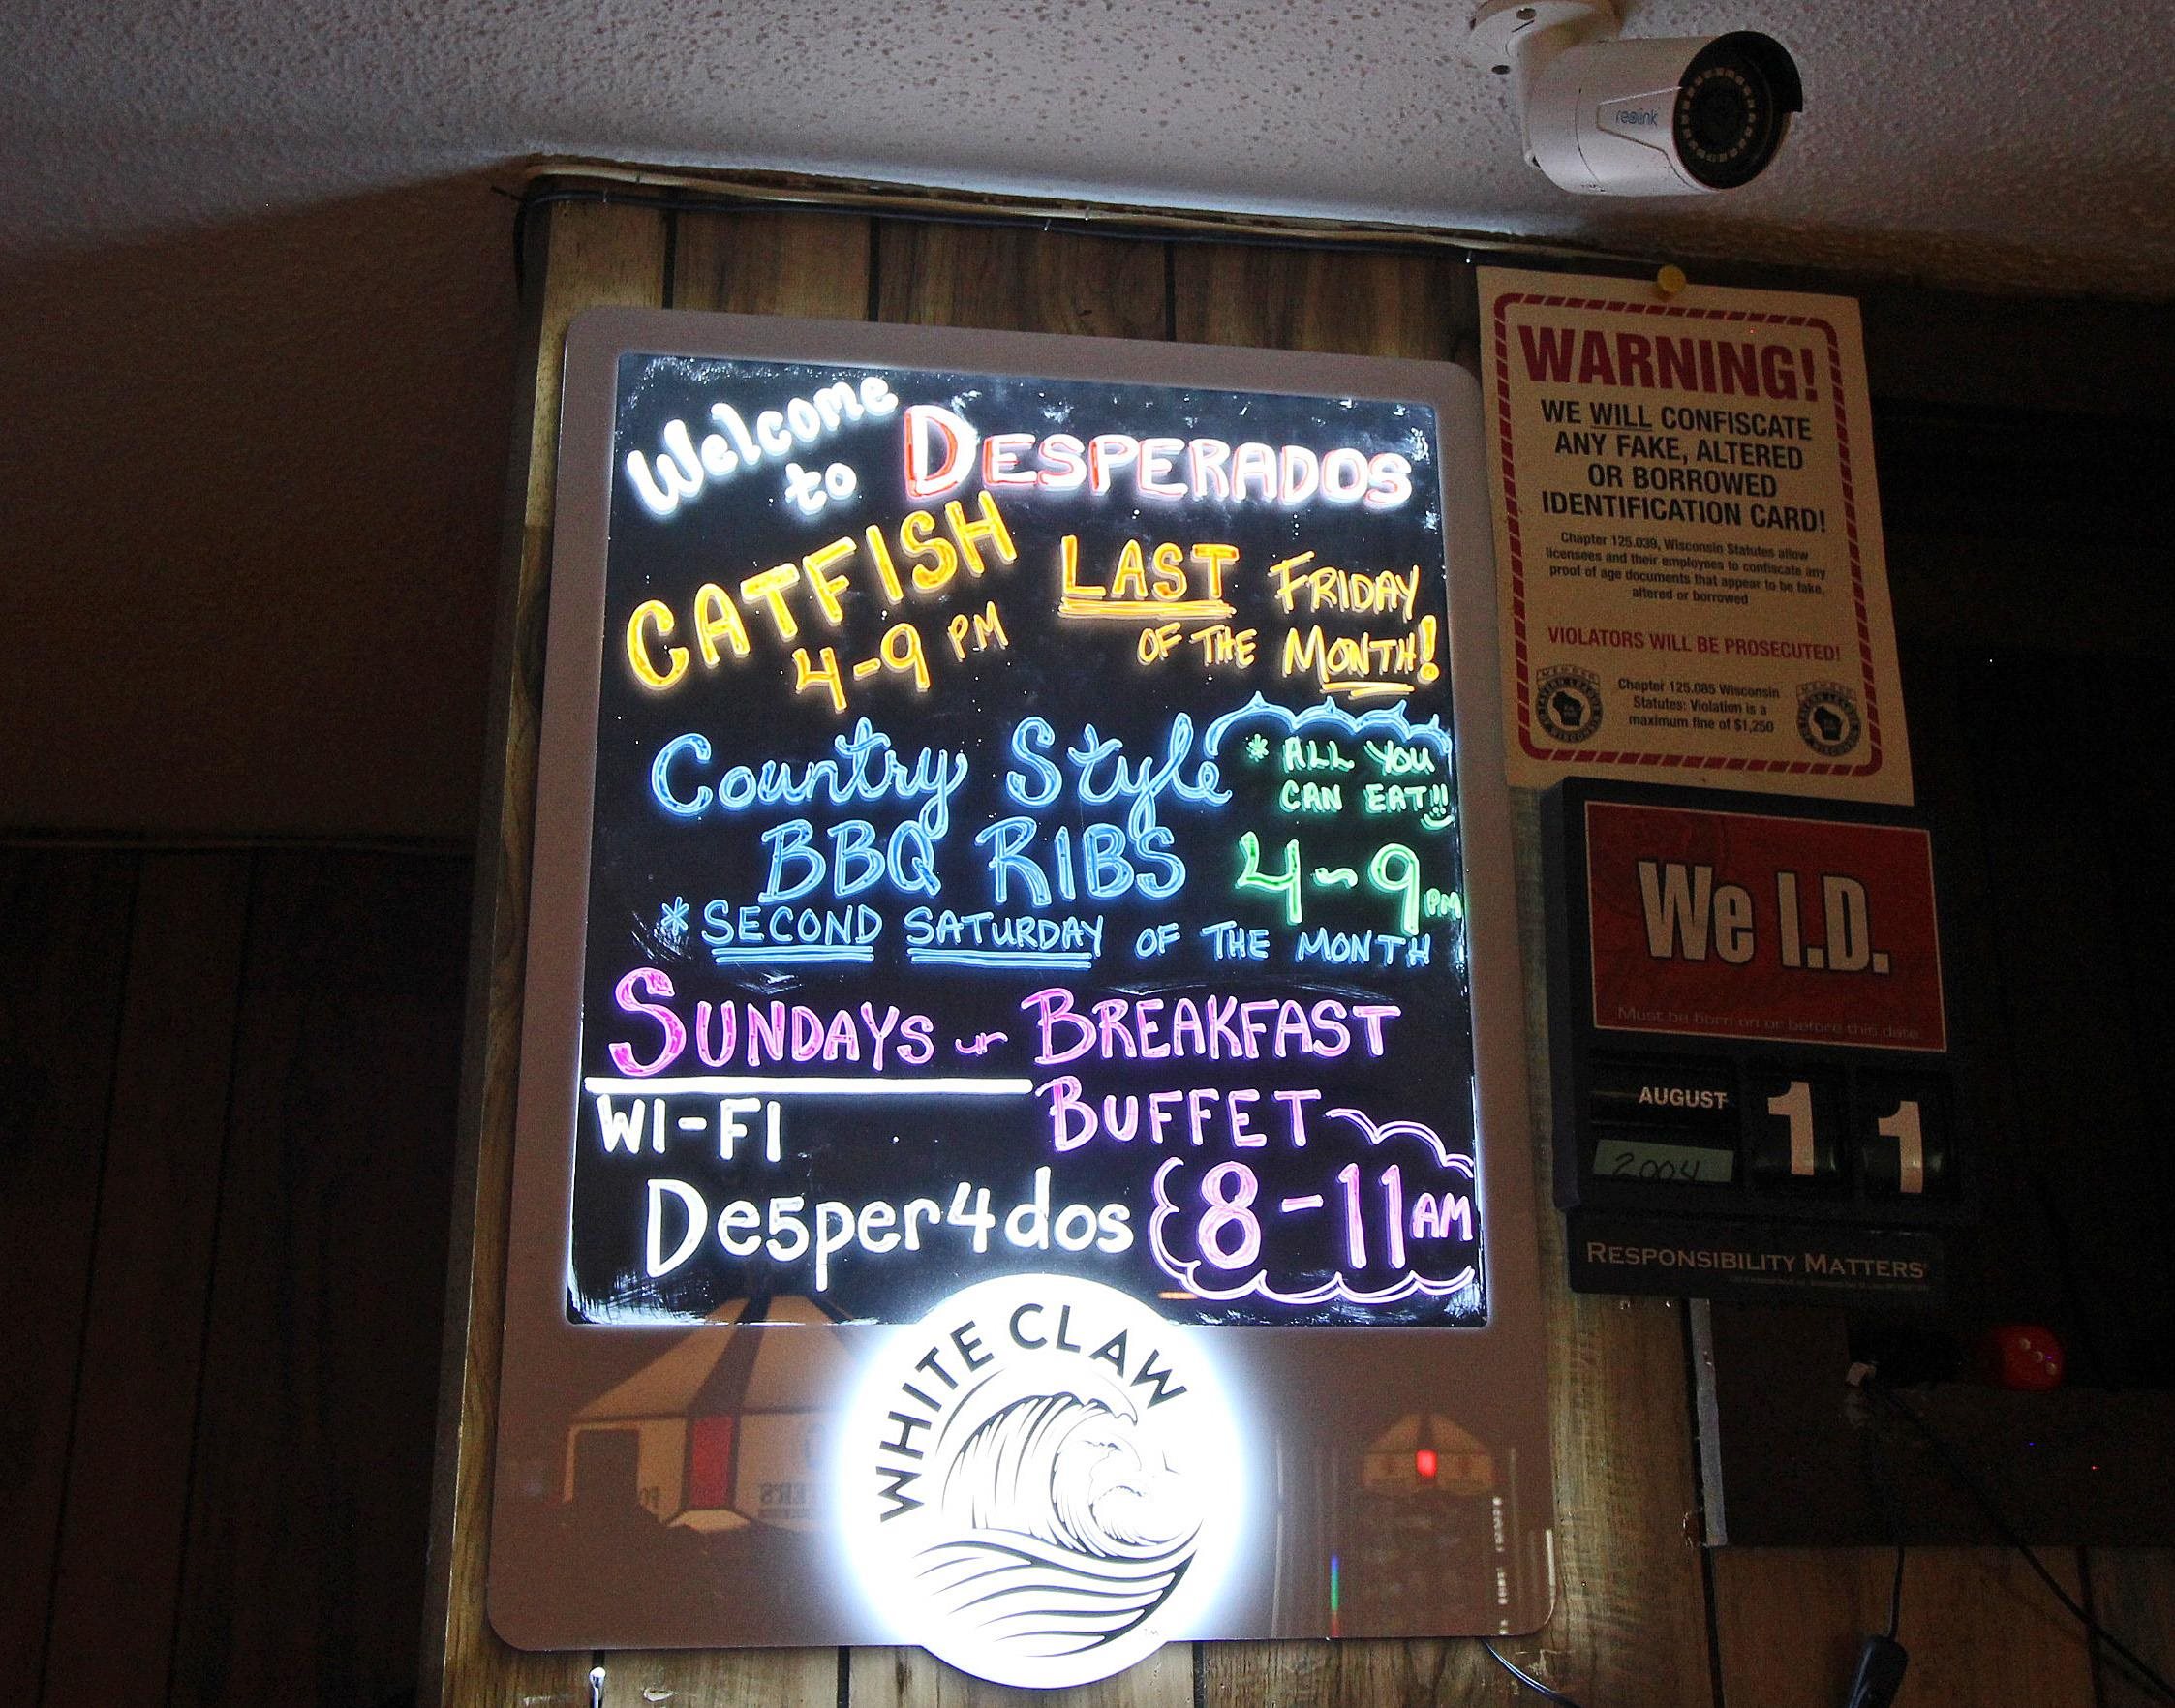 reolink
Welcome
to DESPERADOS
CATFISH LAST FRIDAY
4-9 PM OF THE MONTH!
Country Style
* ALL YOU
CAN EAT!!!
BBQ RIBS 4-9 PM
* SECOND SATURDAY OF THE MONTH
SUNDAYS BREAKFAST
BUFFET
8-11 AM
WI-FI
De5per4dos
WHITE CLAW
TM
WARNING!
WE WILL CONFISCATE
ANY FAKE, ALTERED
OR BORROWED
IDENTIFICATION CARD!
Chapter 125.039, Wisconsin Statutes allow
licensees and their employees to confiscate any
proof of age documents that appear to be fake,
altered or borrowed
VIOLATORS WILL BE PROSECUTED!
Chapter 125.085 Wisconsin
Statutes: Violation is a
maximum fine of $1,250
MEMBER
MEMBER
We I.D.
Must be born on or before this date
AUGUST 11
2004
RESPONSIBILITY MATTERS